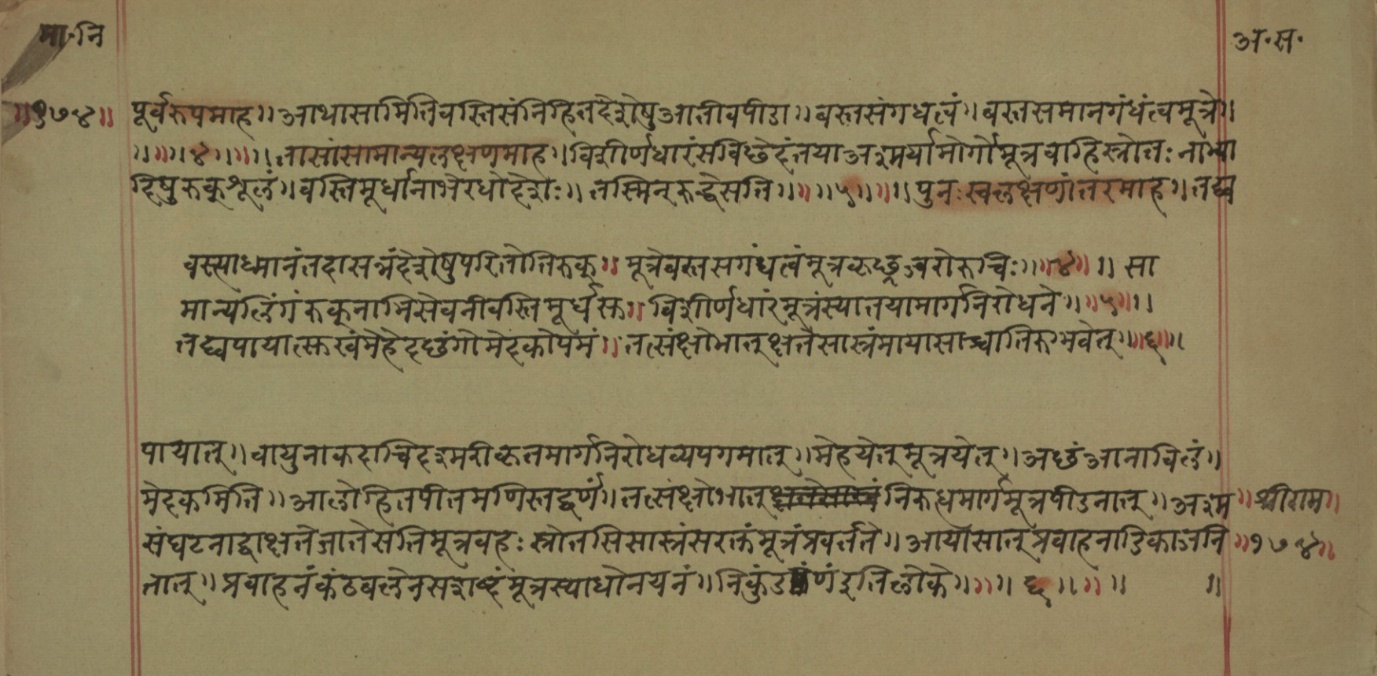 मा·नि
अ·स·
॥१७४॥ पूर्वरुपमाह॥ आथासामितिवस्तिसंनिहितदेशेषुआतीवपीडा॥ बस्तसंगधत्वं॥ बस्तसमानगंधंत्वमूत्रे॥
॥॥४॥॥ तासांसामान्यलक्षणमाह॥ विशीर्णधारंसविछेदंतयाअश्मर्यामार्गेमूत्रवाहिस्त्रोतः नाभ्या
दिषुरुक्शूलं॥ वस्तिमूर्धानाभेरधोदेशः॥ तस्मिन्रुद्धेसति॥॥५॥॥ पुनःस्वलक्षणांतरमाह॥ तद्व्य
वस्त्याध्मानंतदासन्नंदेशेषुपरितोतिरुक्॥ मूत्रेबस्तसगंधत्वंमूत्रकृछ्रज्वरोरुचिः॥॥४॥॥ सा
मान्यंलिंगंरुक्नाभिसेवनीवस्तिमूर्धसु॥ विशीर्णधारंमूत्रंस्यात्तयामार्गनिरोधने॥॥५॥॥
तद्व्यपायात्सुखंमेहेदछंगोमेदकोपमं॥ तत्संक्षोभात्क्षतेसास्त्रंमायासाच्चातिरुग्भवेत्॥॥६॥॥
पायात्॥ वायुनाकदाचिदश्मरीकृतमार्गनिरोधव्यपगमात्॥ मेहयेत्मूत्रयेत्॥ अछंआनाविलं॥
मेदकमिति॥ आलोहितपीतमणिस्तद्वर्णं॥ तत्संक्षोभात् निरुध्धमार्गमूत्रपीडनात्॥ अश्म ॥श्रीराम॥
संघटनाद्वाक्षतेजातेसतिमूत्रवहःस्त्रोतसिसास्त्रंसरक्तंमूत्रंप्रवर्त्तते॥ आयासात्प्रवाहनादिकाजनि ॥१७४॥
तात्॥ प्रवाहनंकंठबलेनसशब्दंमूत्रस्याधोनयनं॥ निकुंडणंइतिलोके॥॥ ६ ॥॥॥ ॥